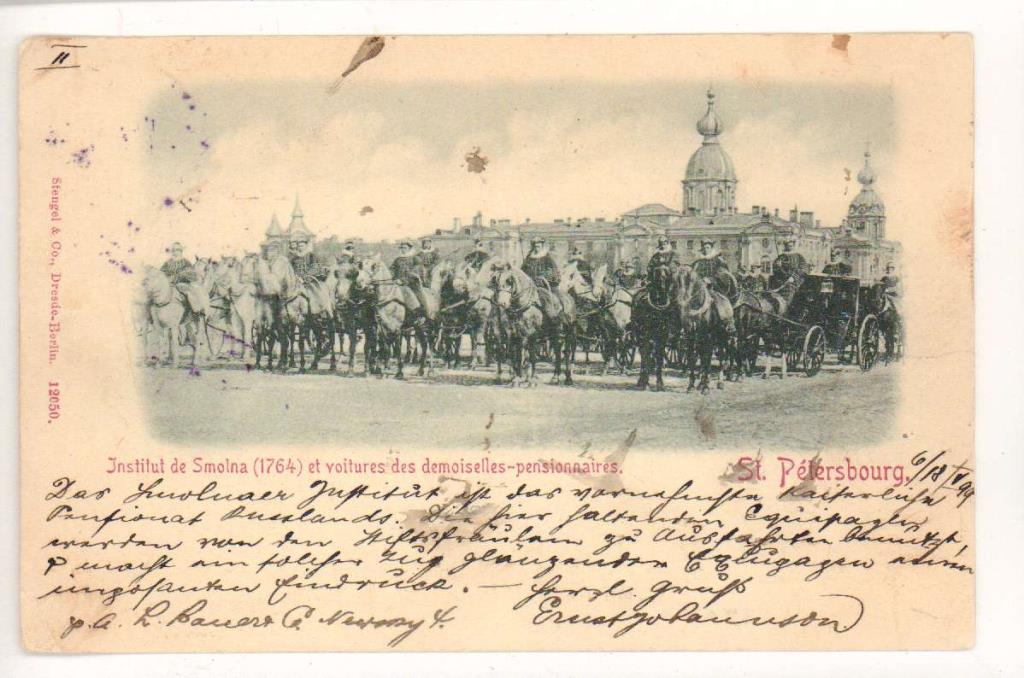 II
Stengel & Co., Dresde-Berlin. 12050.
Institut de Smolna (1764) et voitures des demoiselles-pensionnaires.
St. Pétersbourg, 6/18/V 99
Das Smolnaer Institut ist das vornehmste Kaiserliche
Pensionat Russlands. Die hier haltenden Equipagen
werden von den Stiftsfräulein zu Ausfahrten benutzt,
& macht ein solcher Zug glänzender Equipagen einen
imposanten Eindruck. — Herzl. Gruß
p. a. L. Bauer Newsky 4. Ernst Johannson